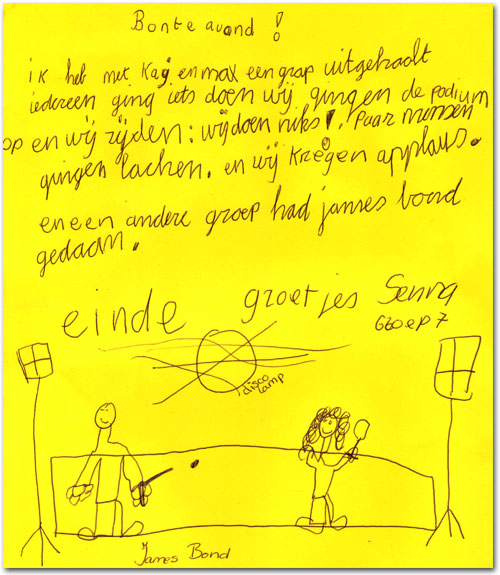 Bonte avond !
ik heb met Kaj en max een grap uitgehaalt
iedereen ging iets doen wij gingen de podium
op en wij zijden: wij doen niks! . Paar mensen
gingen lachen. en wij kregen applaus.
en een andere groep had james bond
gedaan.
einde groetjes Senna
Groep 7
disco
lamp
James Bond